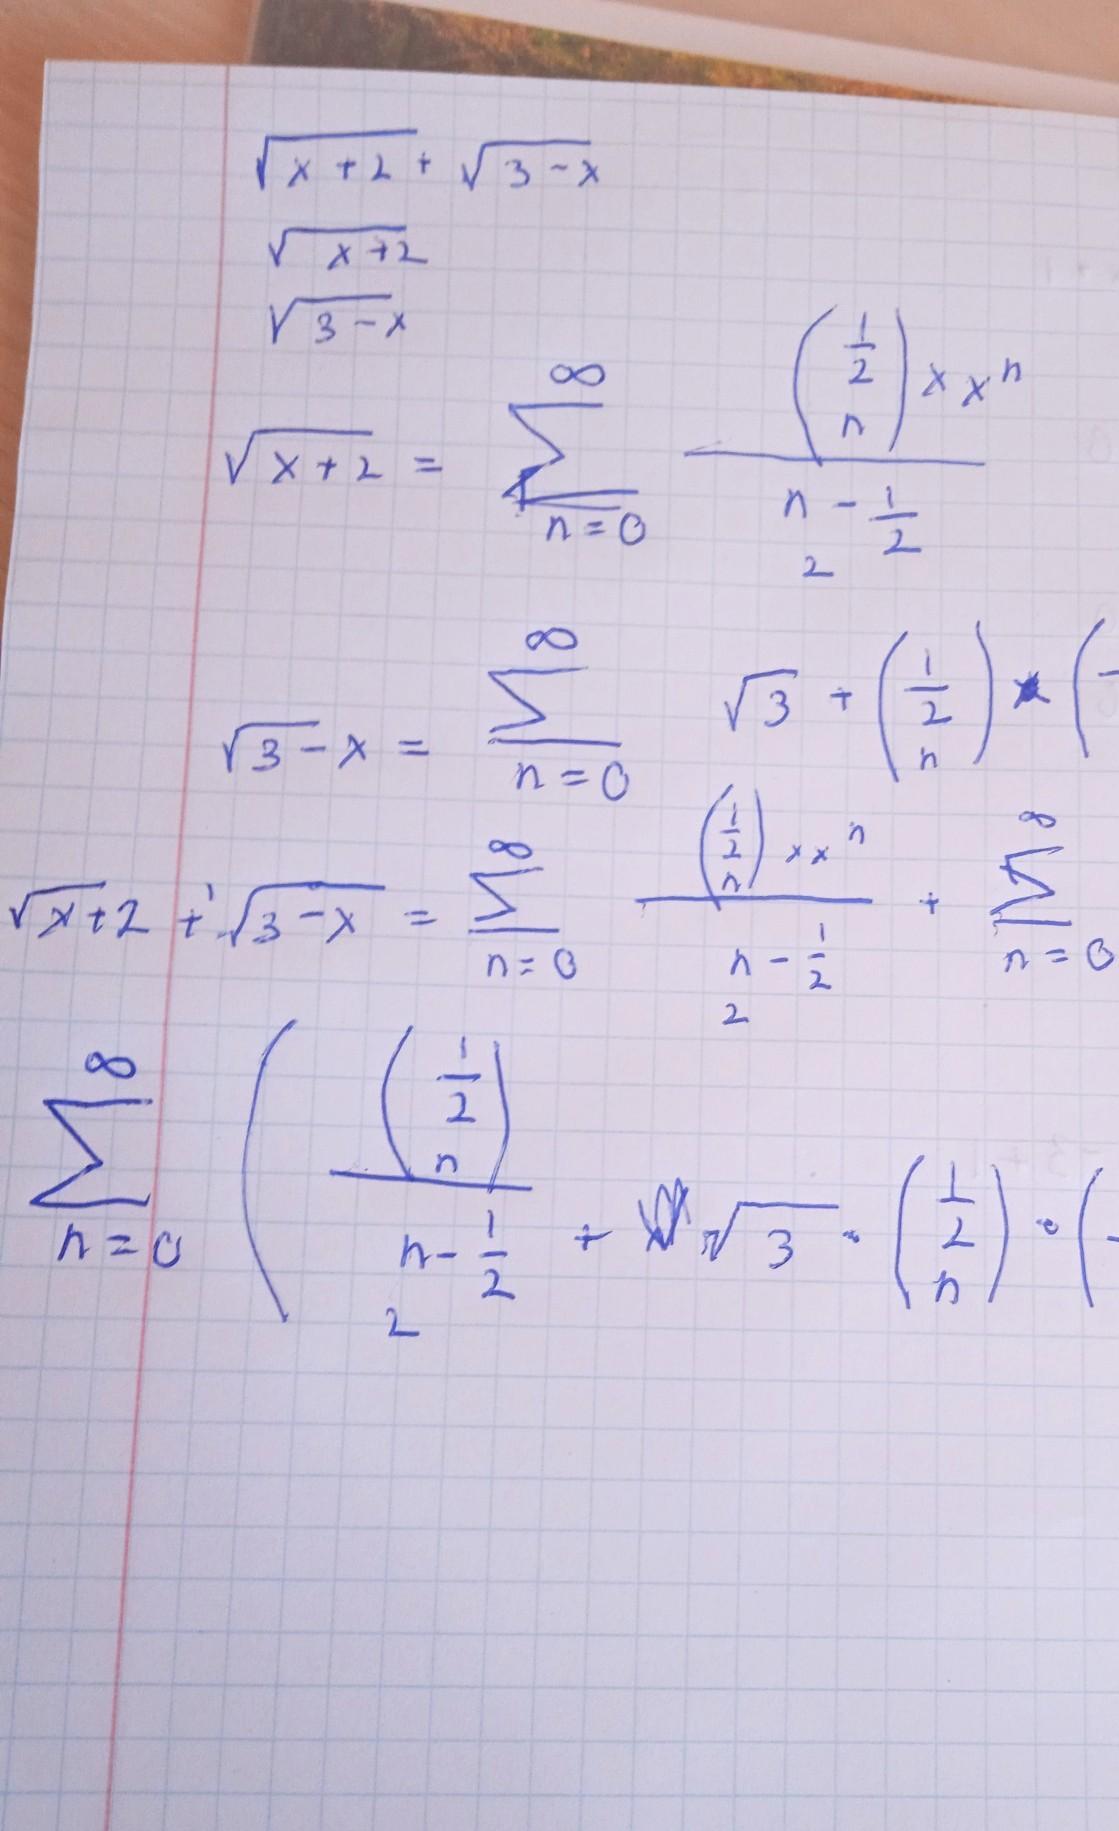 √(x+2) + √(3-x)
√(x+2)
√(3-x)
√(x+2) = ∑_{n=0}^{∞} \frac{\binom{\frac{1}{2}}{n} × x^n}{2^{n-\frac{1}{2}}}
√3-x = ∑_{n=0}^{∞} √3 + \binom{\frac{1}{2}}{n} × (
√x+2 + √(3-x) = ∑_{n=0}^{∞} \frac{\binom{\frac{1}{2}}{n} × x^n}{2^{n-\frac{1}{2}}} + ∑_{n=0}^{∞}
∑_{n=0}^{∞} ( \frac{\binom{\frac{1}{2}}{n}}{2^{n-\frac{1}{2}}} + √3 · \binom{\frac{1}{2}}{n} · (